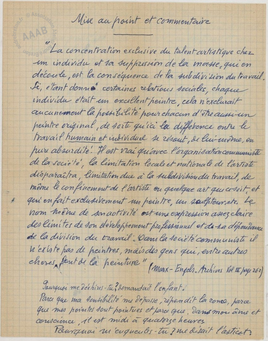 AAAB
Mise au point et commentaire
"La concentration exclusive du talent artistique chez
un individu et sa suppression de la masse, qui en
découle, est la conséquence de la subdivision du travail.
Si, étant donné certaines relations sociales, chaque
individu était un excellent peintre, cela n'exclurait
aucunement la possibilité pour chacun d'être aussi un
peintre original, de sorte qu'ici la différence entre le
travail humain et individuel se résout, de lui-même, en
pure absurdité. Il est vrai qu'avec l'organisation communiste
de la société, la limitation locale et nationale de l'artiste
disparaîtra, limitation due à la subdivision du travail, de
même le confinement de l'artiste en quelque art que ce soit, et
qui en fait exclusivement un peintre, un sculpteur etc. Le
nom même de son activité est une expression assez claire
des limites de son développement professionnel et de sa dépendance
de la division du travail. Dans la société communiste il
n'existe pas de peintres, mais des gens qui, entre autres
choses, font de la peinture"
(Marx-Engels, Archives
Pourquoi me déchirer? demandait l'enfant.
Parce que ma sensibilité me dépasse, répondit la ronce, parce
que mes pointes sont pointure et parce que dans mon âme et
conscience, il est midi à quatorze heures.
Pourquoi m'engueules-tu? me disait l'asticot.